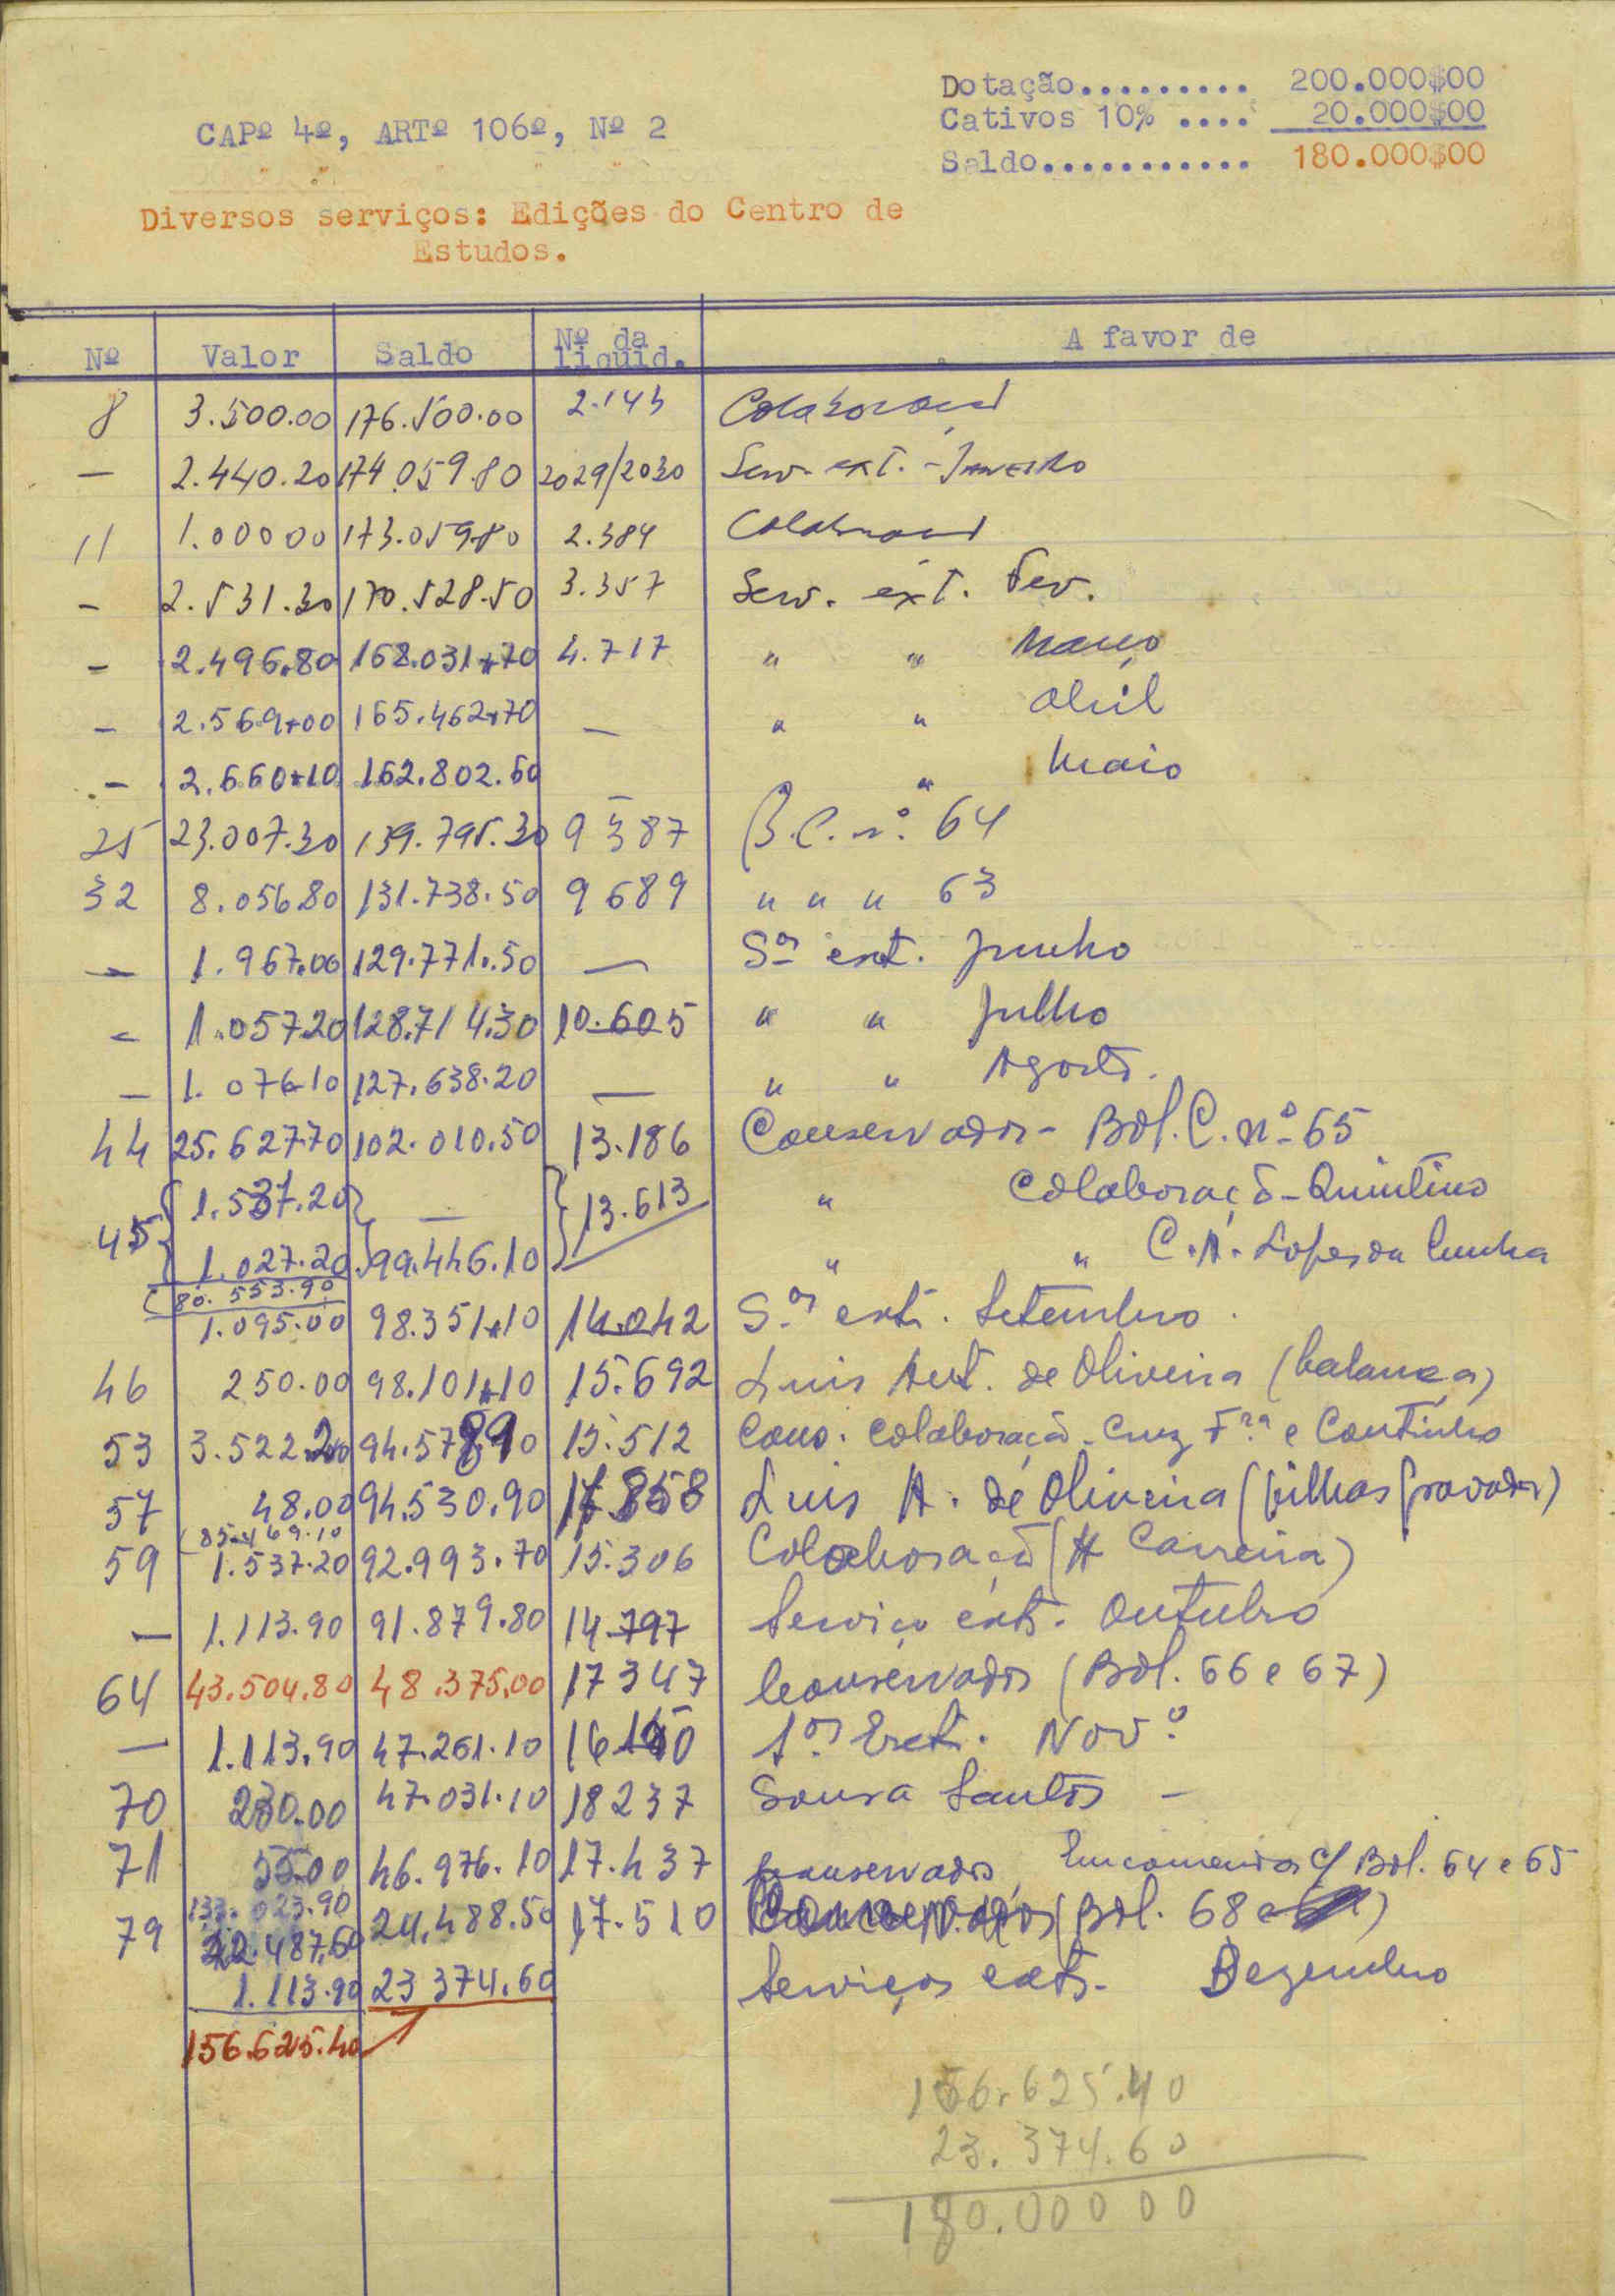 Dotação......... 200.000$00
Cativos 10% .... 20.000$00
Saldo........... 180.000$00
CAPº 4º, ARTº 106º, Nº 2
Diversos serviços: Edições do Centro de
Estudos.
Nº Valor Saldo Nº da liquid. A favor de
8 3.500.00 176.500.00 2.143 Colaboração
— 2.440.20 174.059.80 2029/2030 Serv. ext. - Janeiro
11 1.000 00 173.059.80 2.384 Colaboração
- 2.531.30 170.528.50 3.357 Serv. ext. Fev.
- 2.496.80 168.031+70 4.717 " " Março
- 2.569+00 165.462+70 — " " Abril
- 2.660+10 162.802.60 — " " Maio
25 23.007.30 139.795.30 9387 B.C. nº. 64
32 8.056.80 131.738.50 9689 " " " 63
- 1.967.00 129.771.50 — Sos ext. Junho
- 1.057.20 128.714.30 10.605 " " Julho
— 1.076.10 127.638.20 — " " Agosto.
44 25.627.70 102.010.50 13.186 Conservador - Bol. C. nº 65
45 1.537.20 — 13.613 " Colaboração - Quintino
1.027.20 99.446.10 " " C. A. Lopes da Cunha
80.553.90
1.095.00 98.351+10 14.042 Sos ext. Setembro.
46 250.00 98.101+10 15.692 Luis Ant. de Oliveira (balança)
53 3.522.20 94.578.90 15.512 Cons. colaboração - Cruz Frra e Coutinho
57 48.00 94.530.90 17.858 Luis A. de Oliveira (pilhas gravador)
85.469.10
59 1.537.20 92.993.70 15.306 Colaboração (A Carreira)
— 1.113.90 91.879.80 14.797 Serviço ext. Outubro
64 43.504.80 48.375.00 17347 Conservador (Bol. 66 e 67)
— 1.113.90 47.261.10 Sos Ext. Novº
70 230.00 47.031.10 18237 Sousa Santos -
71 55.00 46.976.10 17.437 Conservador, Encomendas c/ Bol. 64 e 65
133.023.90
79 22.487.60 24.488.50 17.510 Conservador (Bol. 68 e )
1.113.90 23 374.60 Serviços ext. Dezembro
156.625.40
156.625.40
23.374.60
180.000 00